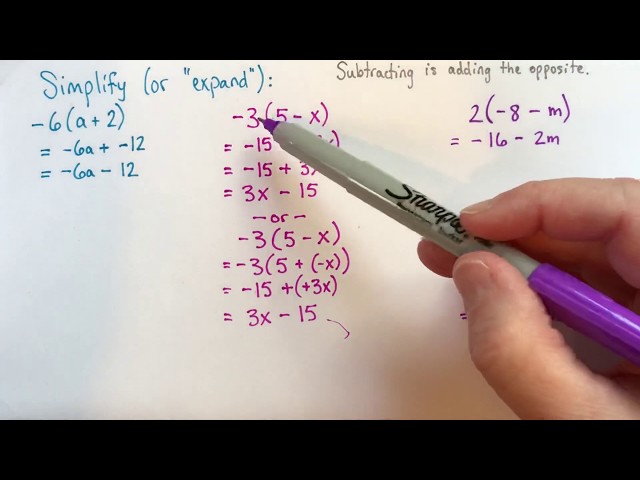 Simplify (or "expand"):
Subtracting is adding the opposite.
-6(a + 2)
= -6a + -12
= -6a - 12
-3(5 - x)
= -15
= -15 + 3x
= 3x - 15
- or -
-3(5 - x)
= -3(5 + (-x))
= -15 + (+3x)
= 3x - 15
2(-8 - m)
= -16 - 2m
=
Sharpie